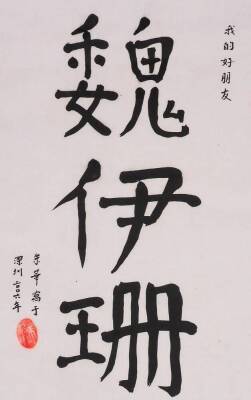 我的好朋友
魏伊珊
朱華寫于
深圳二〇〇六年